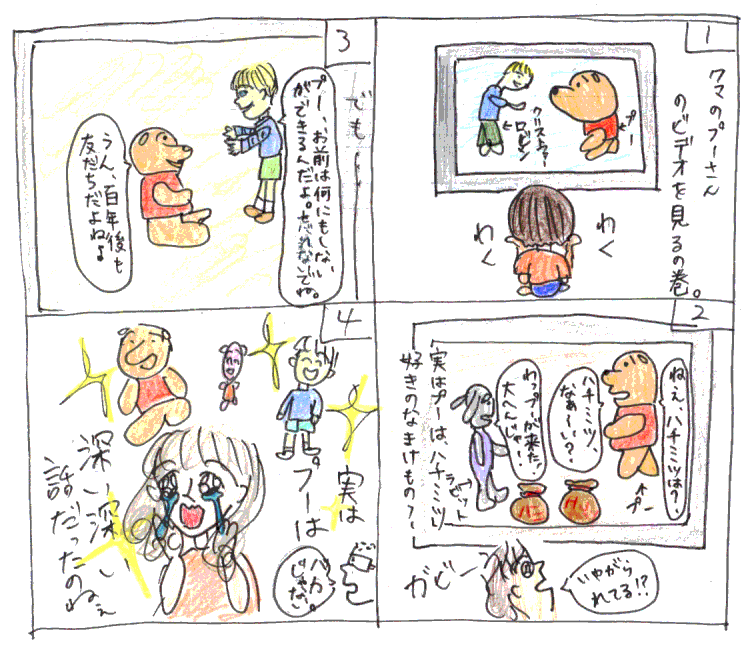 1
クマのプーさん
のビデオを見るの巻。
プー
クリストファー
ロビン
わく
わく
2
ねぇ、ハチミツは?、
ハチミツ、
なぁ〜い?、
わっプーが来た!
大へんじゃ!
プー
ラビット
ハニ
クリ
実はプーは、ハチミツ
好きのなまけもの?〜
いやがら
れてる!?
ガビーン
3
でも…
プー、お前は何にもしない
ができるんだよ。忘れないでね。
うん、百年後も
友だちだよねぇ
4
実は
プーは
バカ
じゃない。
深い深ーい
話だったのねぇ